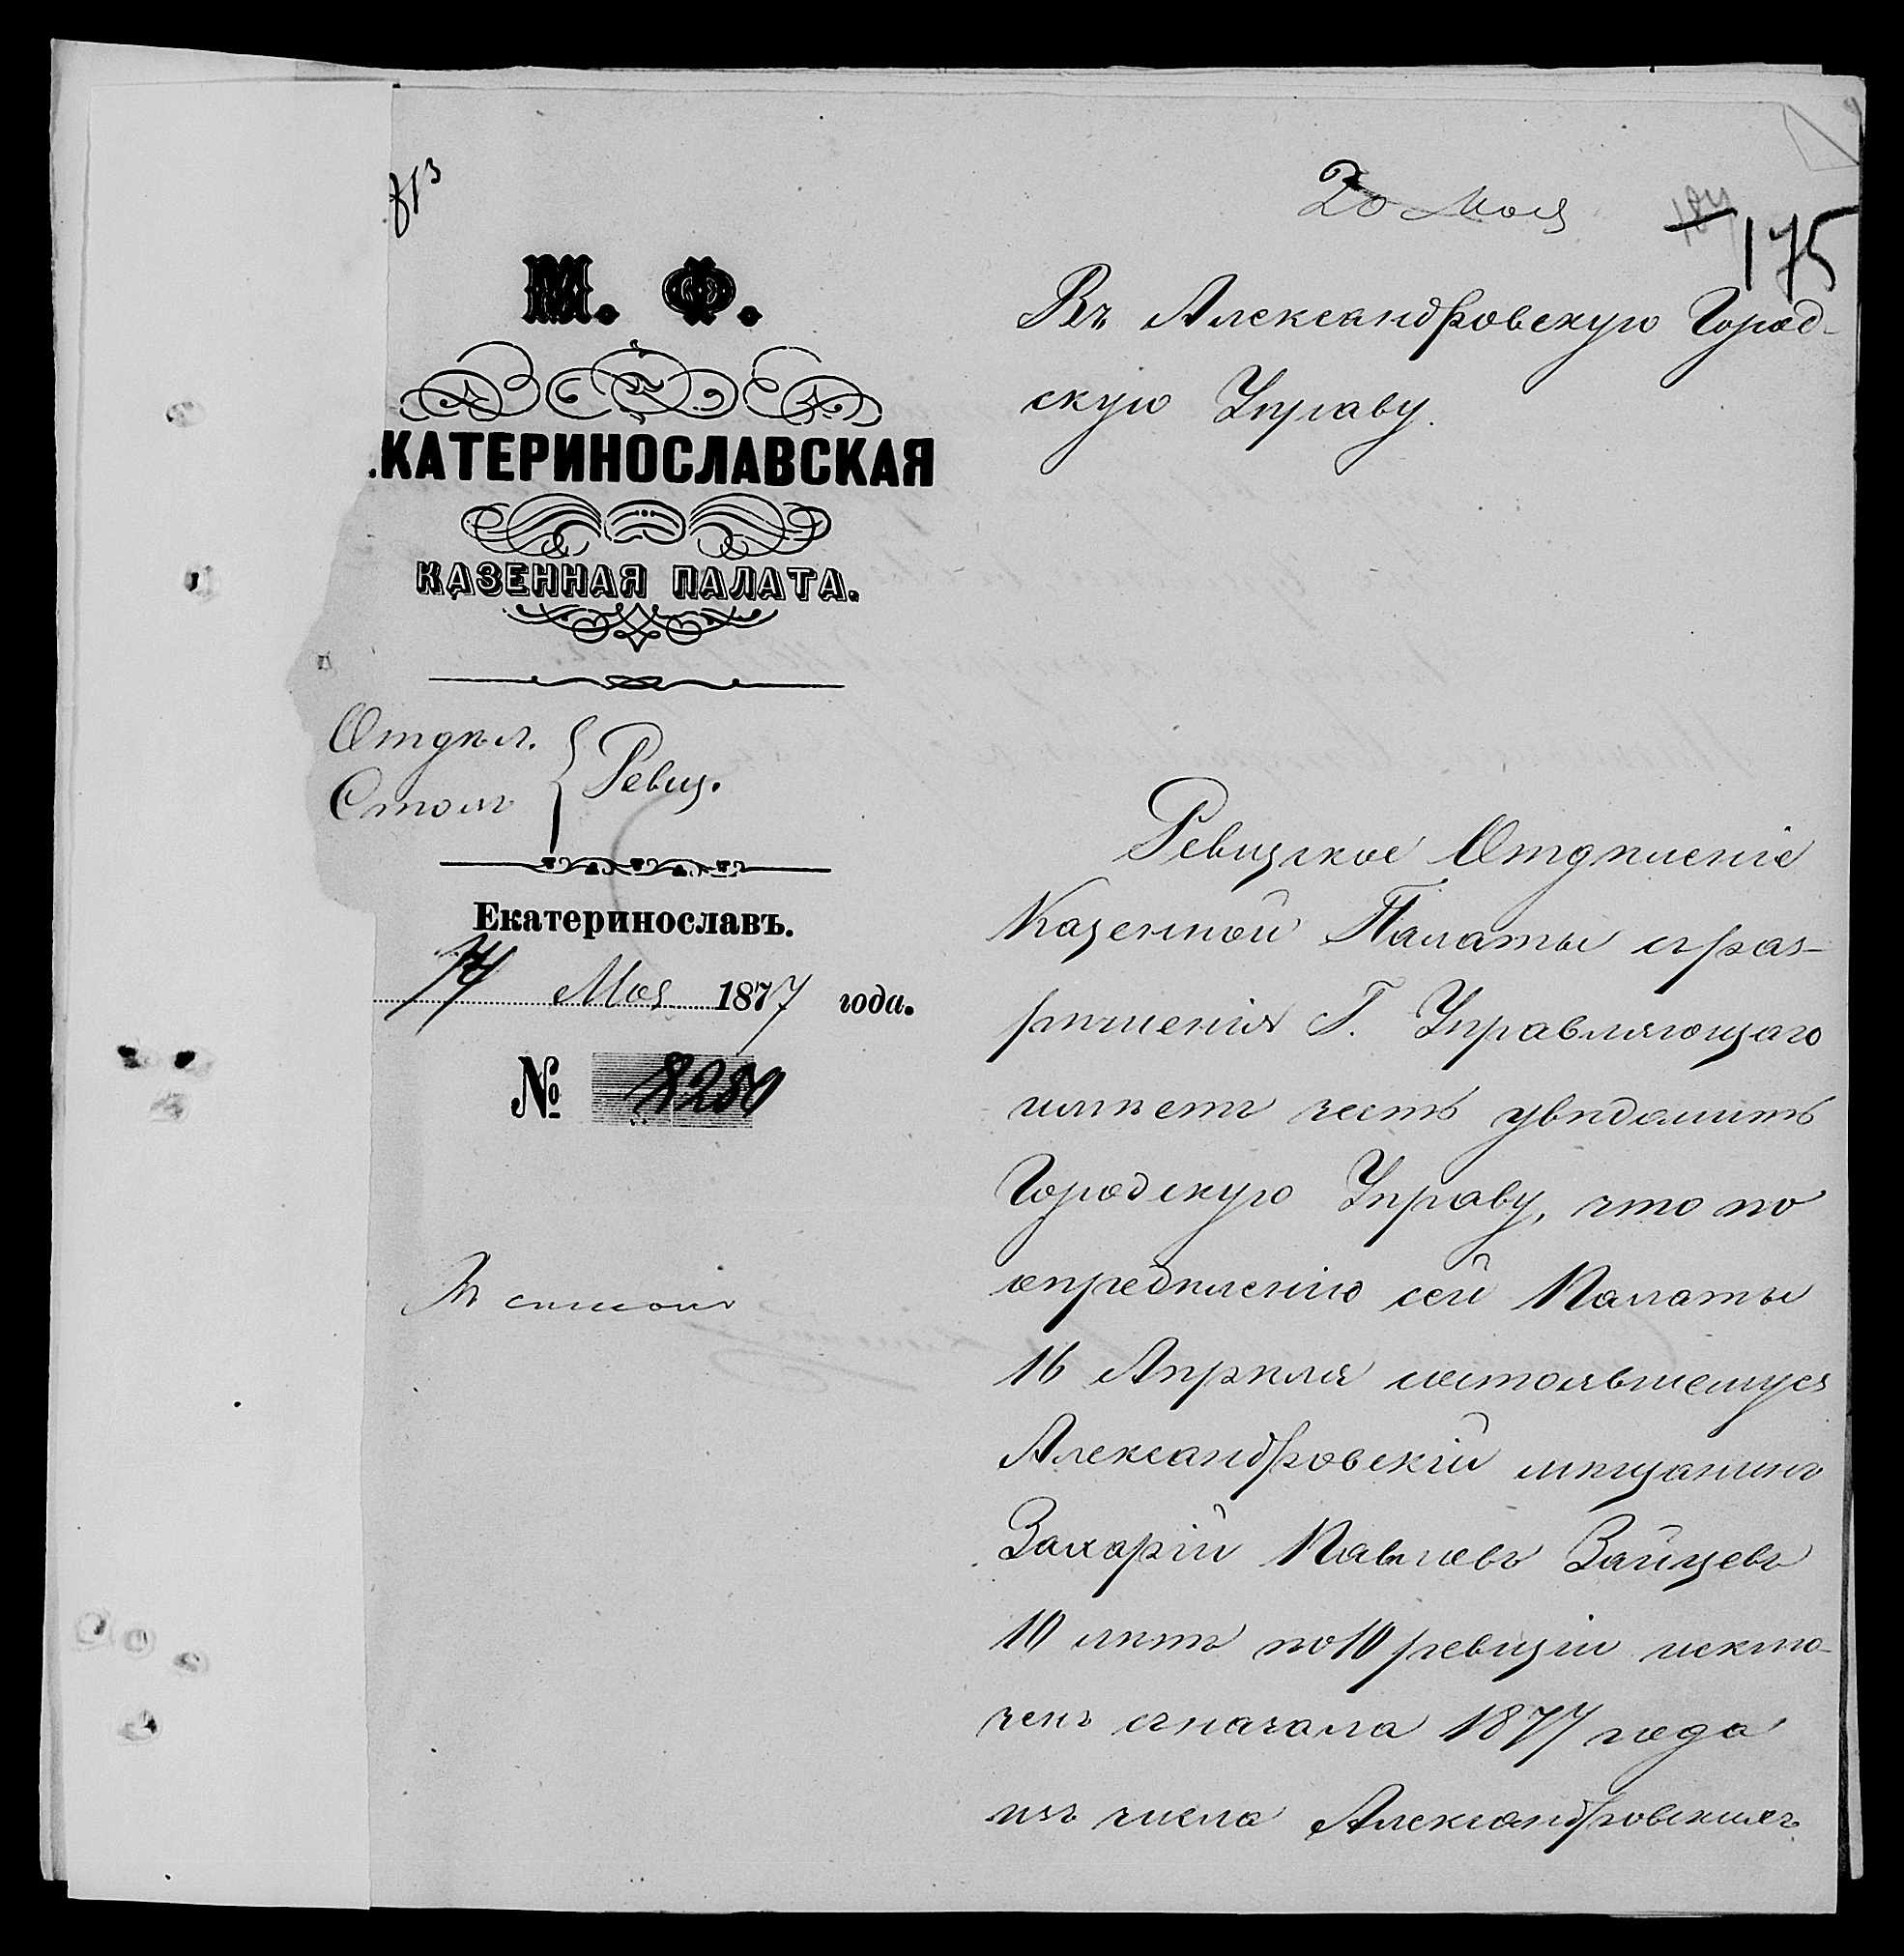 813
20 Мая
184
175
М. Ф.
.КАТЕРИНОСЛАВСКАЯ
КАЗЕННАЯ ПАЛАТА.
Отдѣл.
Столъ
Ревиз.
Екатеринославъ.
14 Мая 1877 года.
№ 8280
Въ Александровскую Город-
скую Управу.
Ревизское Отдѣленіе
Казенной Палаты съ раз-
рѣшенія Г. Управляющаго
имѣетъ честь увѣдомить
Городскую Управу, что по
опредѣленію сей Палаты
16 Апрѣля состоявшемуся
Александровскій мѣщанинъ
Захарій Павловъ Зайцевъ
10 лѣтъ по 10 ревизіи исклю-
ченъ съ начала 1877 года
изъ числа Александровскихъ